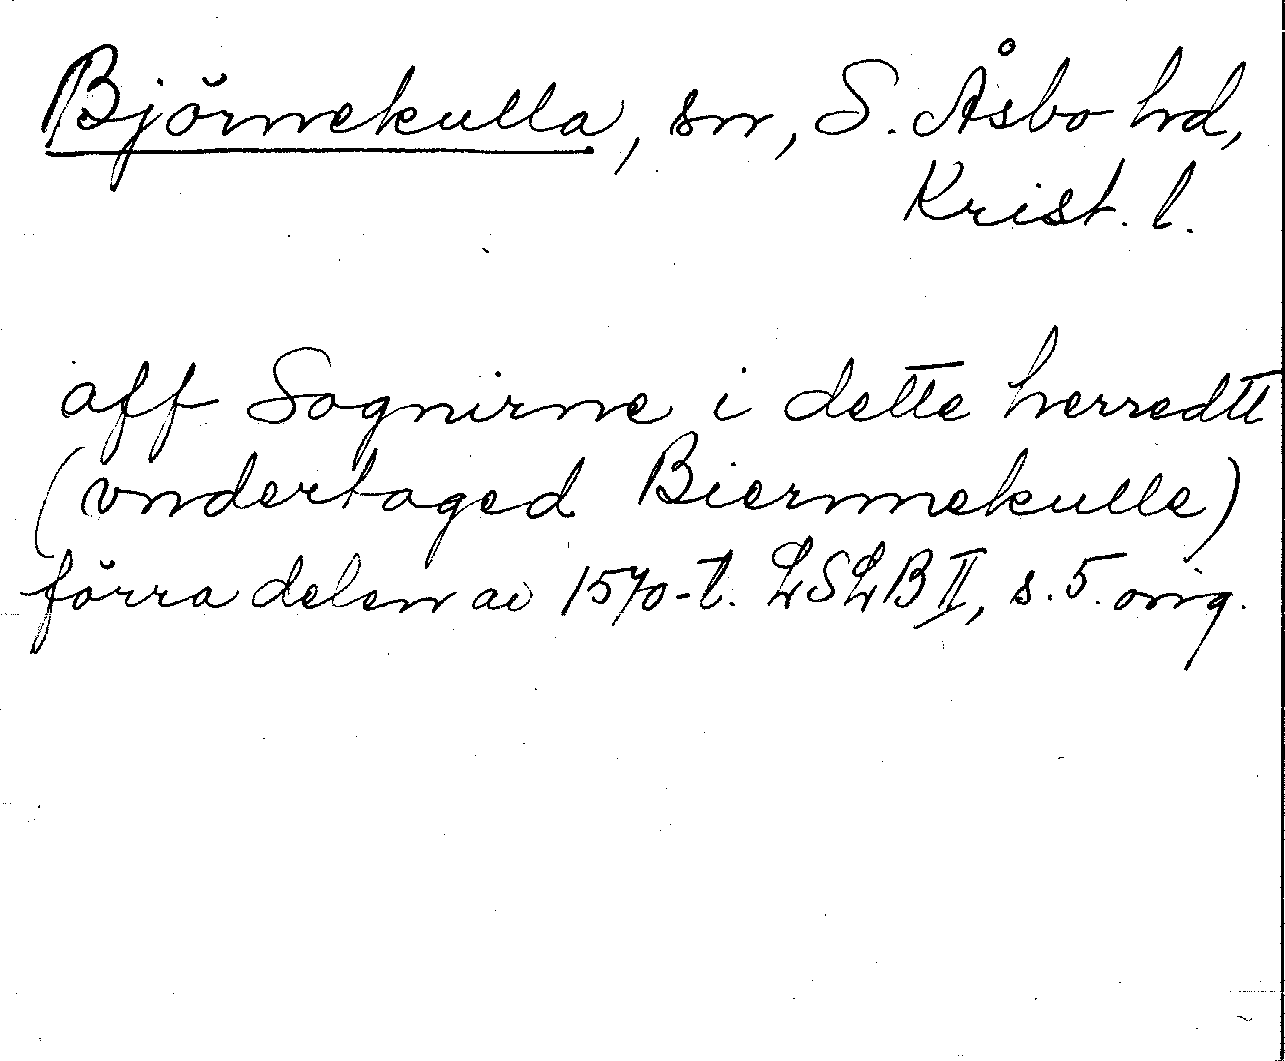 Björnekulla, sn, S. Åsbo hd,
Krist. l.
aff Sognirne i dette herredtt
(vndertaged Biernnekulle)
förra delen av 1570-t. LSLB II, s. 5. orig.